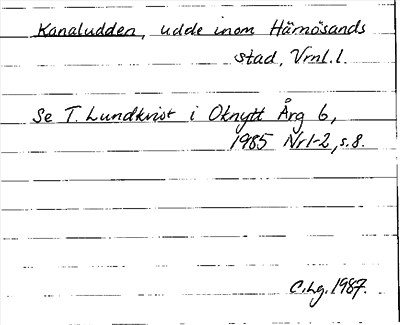 Kanaludden, udde inom Härnösands
stad, Vrnl.l.
Se T. Lundkvist i Oknytt Årg 6,
1985 Nr1-2, s.8.
C.Lg. 1987.